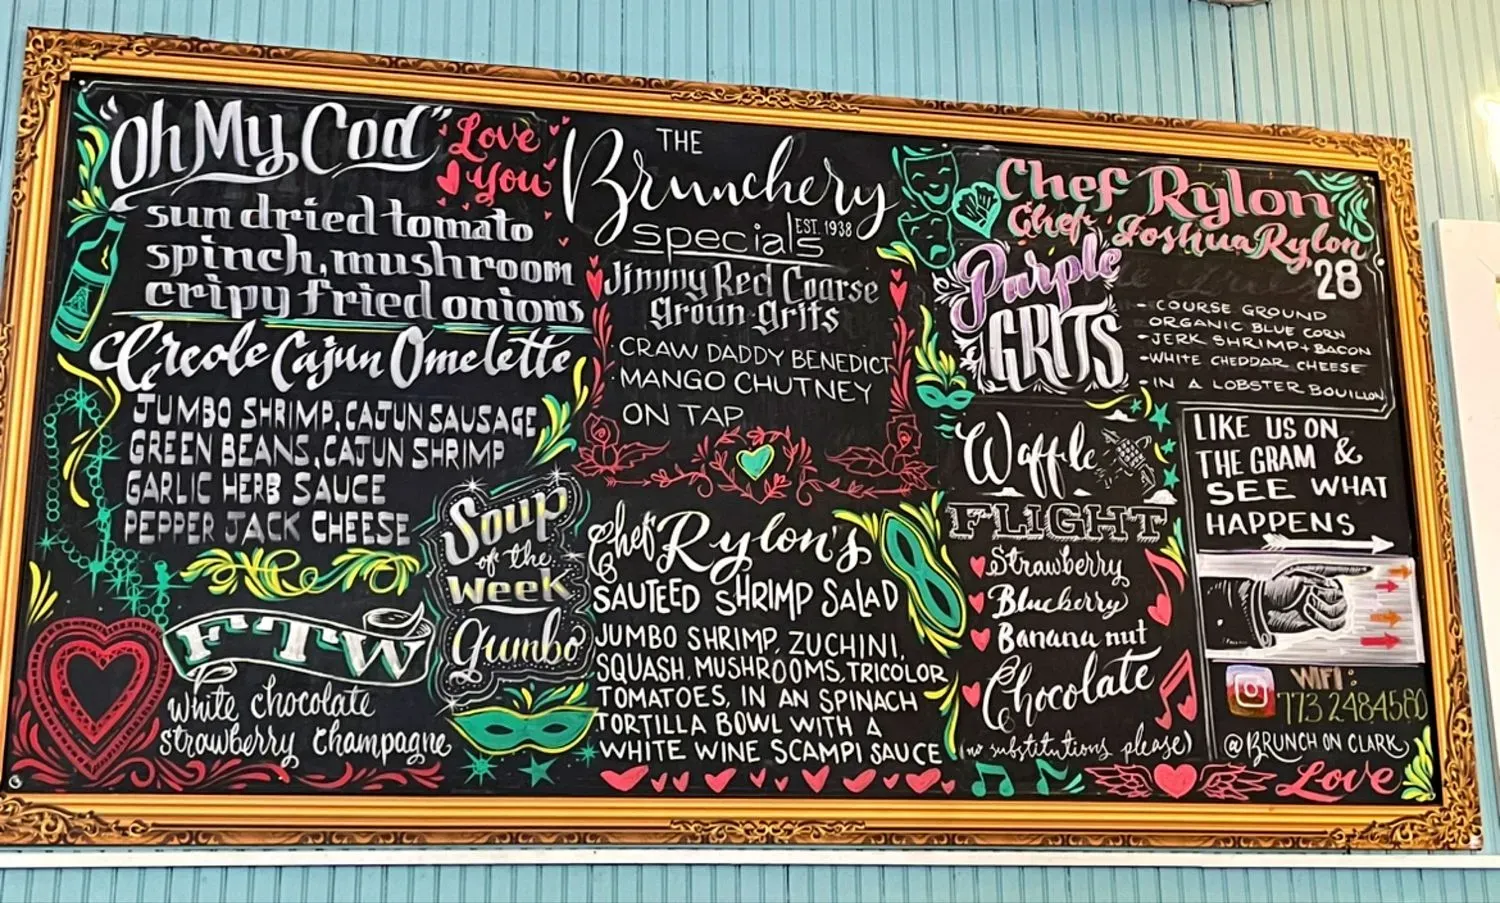 "Oh My Cod"
Love
You
sundried tomato
spinch, mushroom
cripy fried onions
Creole Cajun Omelette
JUMBO SHRIMP, CAJUN SAUSAGE
GREEN BEANS, CAJUN SHRIMP
GARLIC HERB SAUCE
PEPPER JACK CHEESE
Soup
of the
Week
gumbo
FTW
white chocolate
strawberry champagne
THE
Brunchery
EST. 1938
specials
Jimmy Red Coarse
Groun Grits
CRAW DADDY BENEDICT
MANGO CHUTNEY
ON TAP
Chef Rylon's
SAUTEED SHRIMP SALAD
JUMBO SHRIMP, ZUCHINI,
SQUASH, MUSHROOMS, TRICOLOR
TOMATOES, IN AN SPINACH
TORTILLA BOWL WITH A
WHITE WINE SCAMPI SAUCE
Chef Rylon
Chef Joshua Rylon
28
Purple
GRITS
- COURSE GROUND
ORGANIC BLUE CORN
- JERK SHRIMP + BACON
- WHITE CHEDDAR CHEESE
- IN A LOBSTER BOUILLON
Waffle
FLIGHT
Strawberry
Blueberry
Banana nut
Chocolate
(no substitutions please)
LIKE US ON
THE GRAM &
SEE WHAT
HAPPENS
WIFI:
773 2484580
@BRUNCH ON CLARK
Love